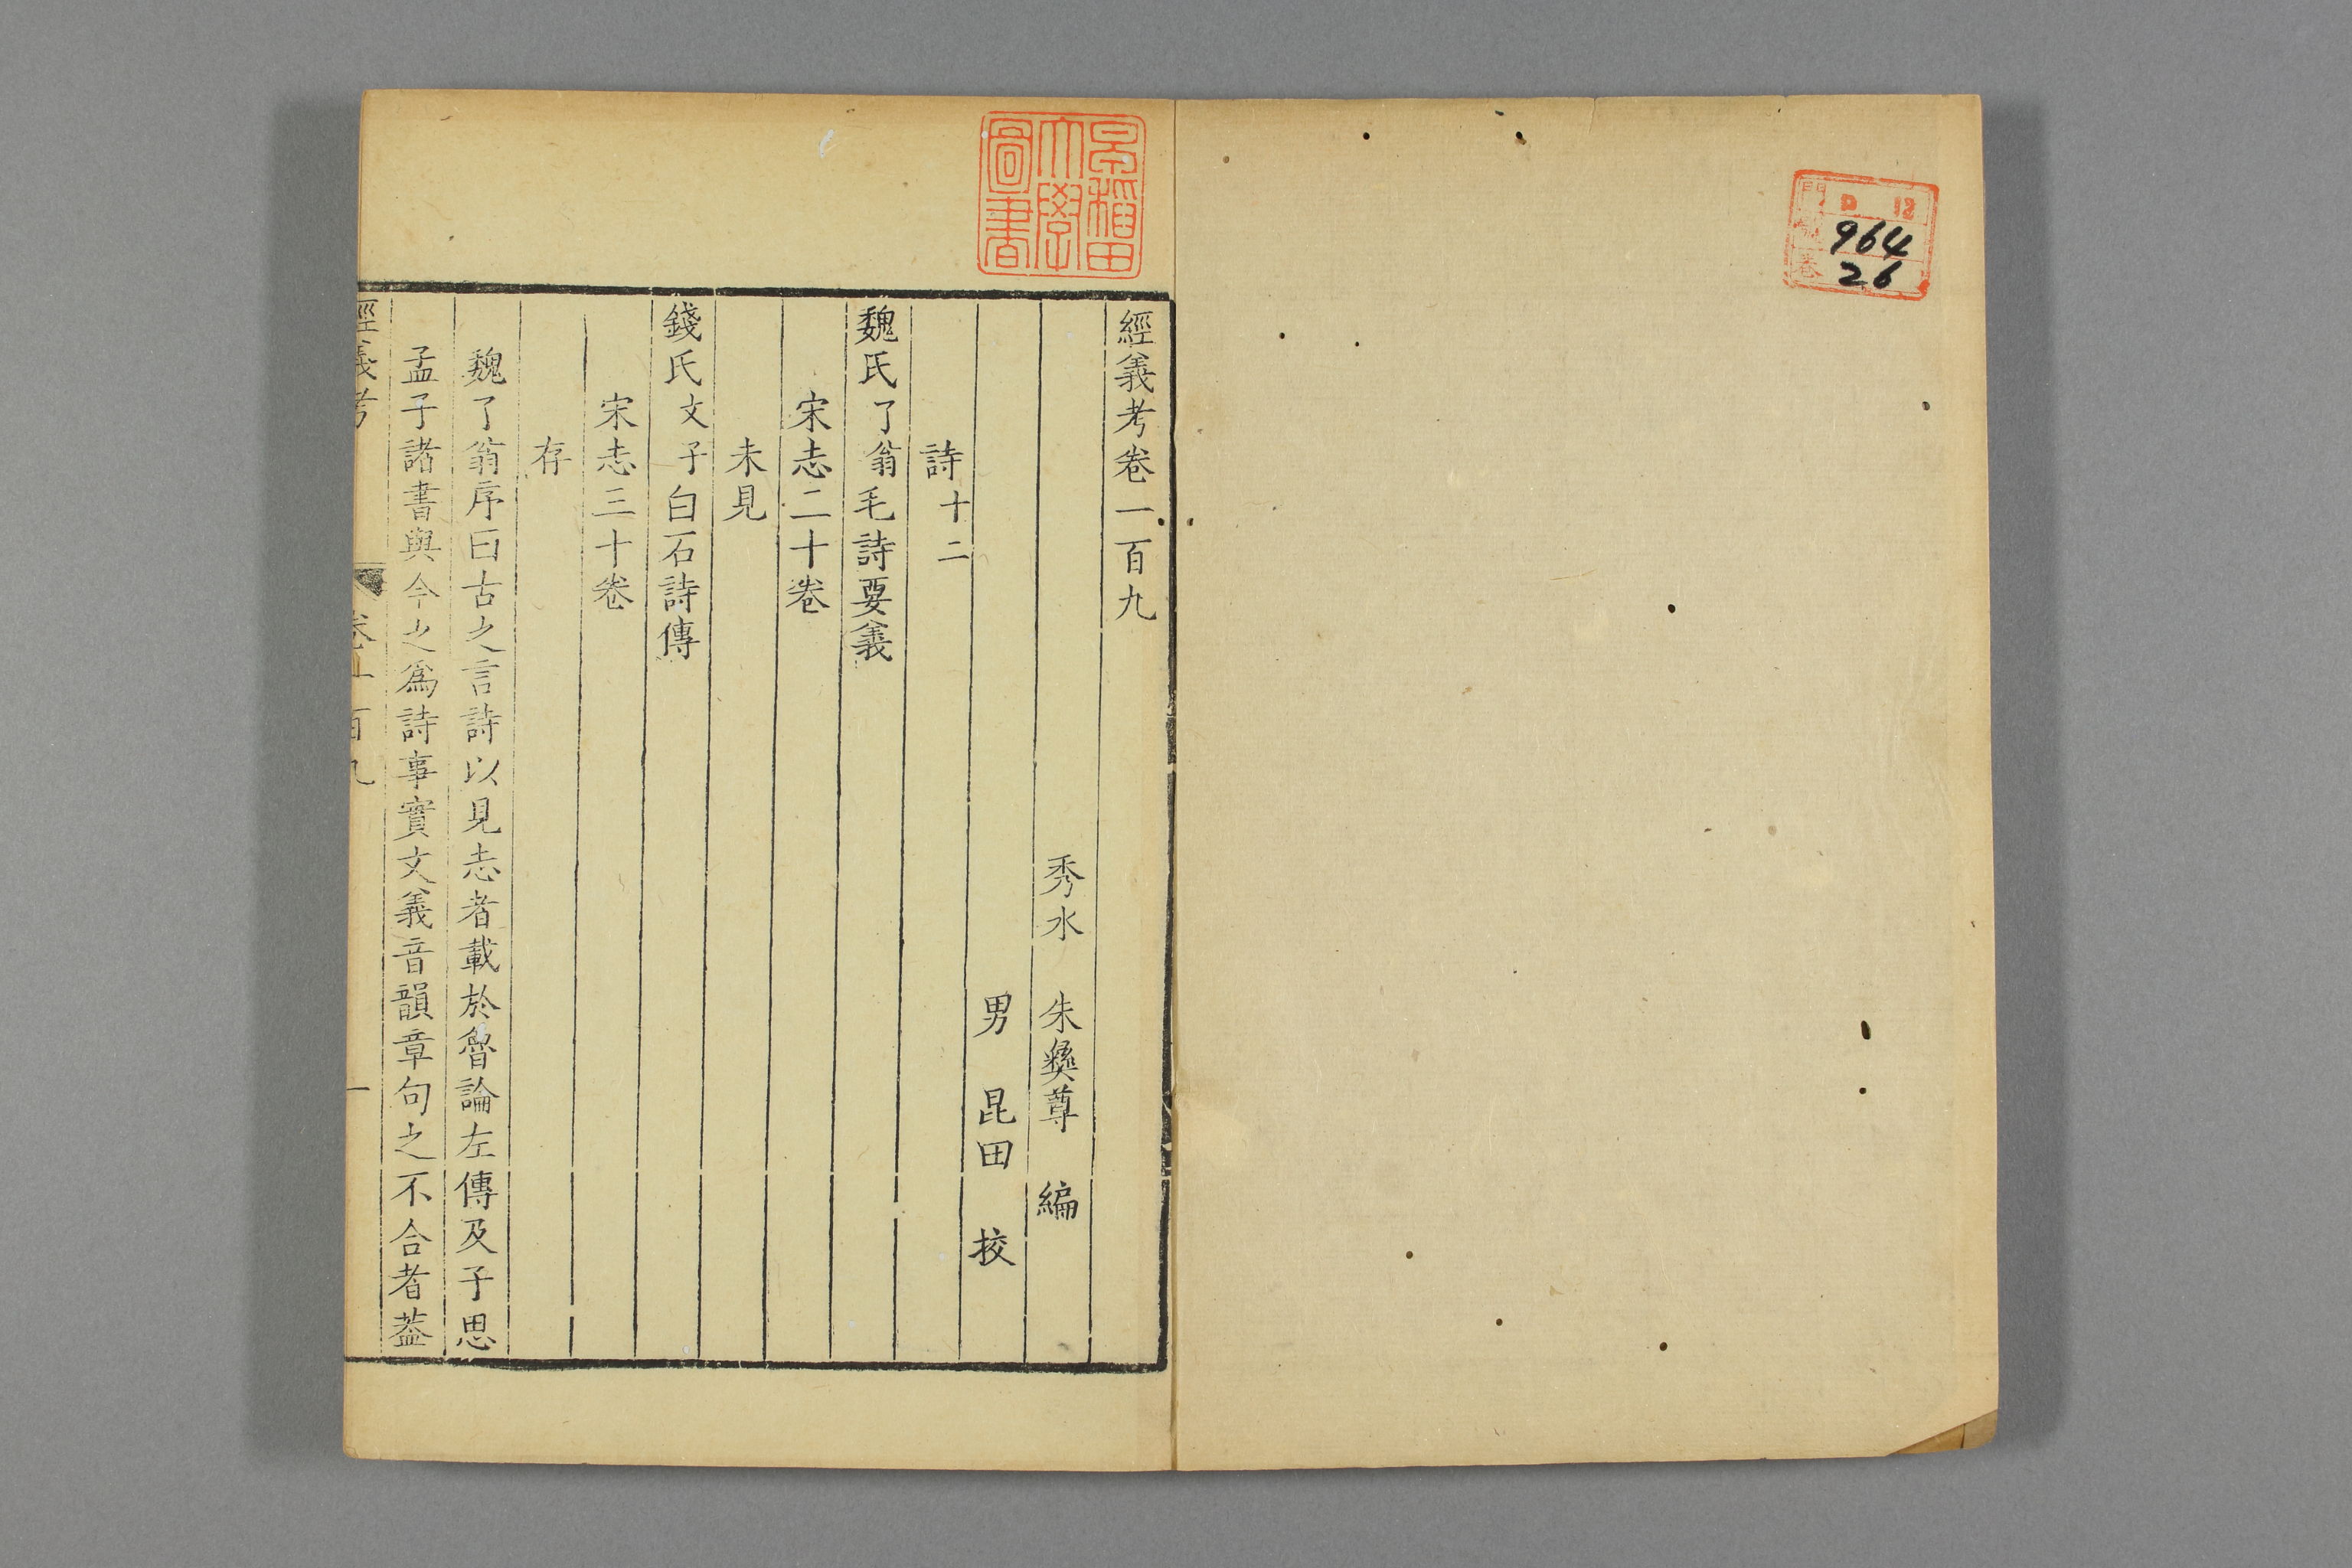 門 ロ 12
號 964
卷 26
早稲田
大學
圖書
經義考卷一百九
秀水 朱彝尊 編
男 昆田 挍
詩十二
魏氏了翁毛詩要義
宋志二十卷
未見
錢氏文子白石詩傳
宋志三十卷
存
魏了翁序曰古之言詩以見志者載於魯論左傳及子思
孟子諸書與今之爲詩事實文義音韻章句之不合者葢
經義考 卷一百九 一